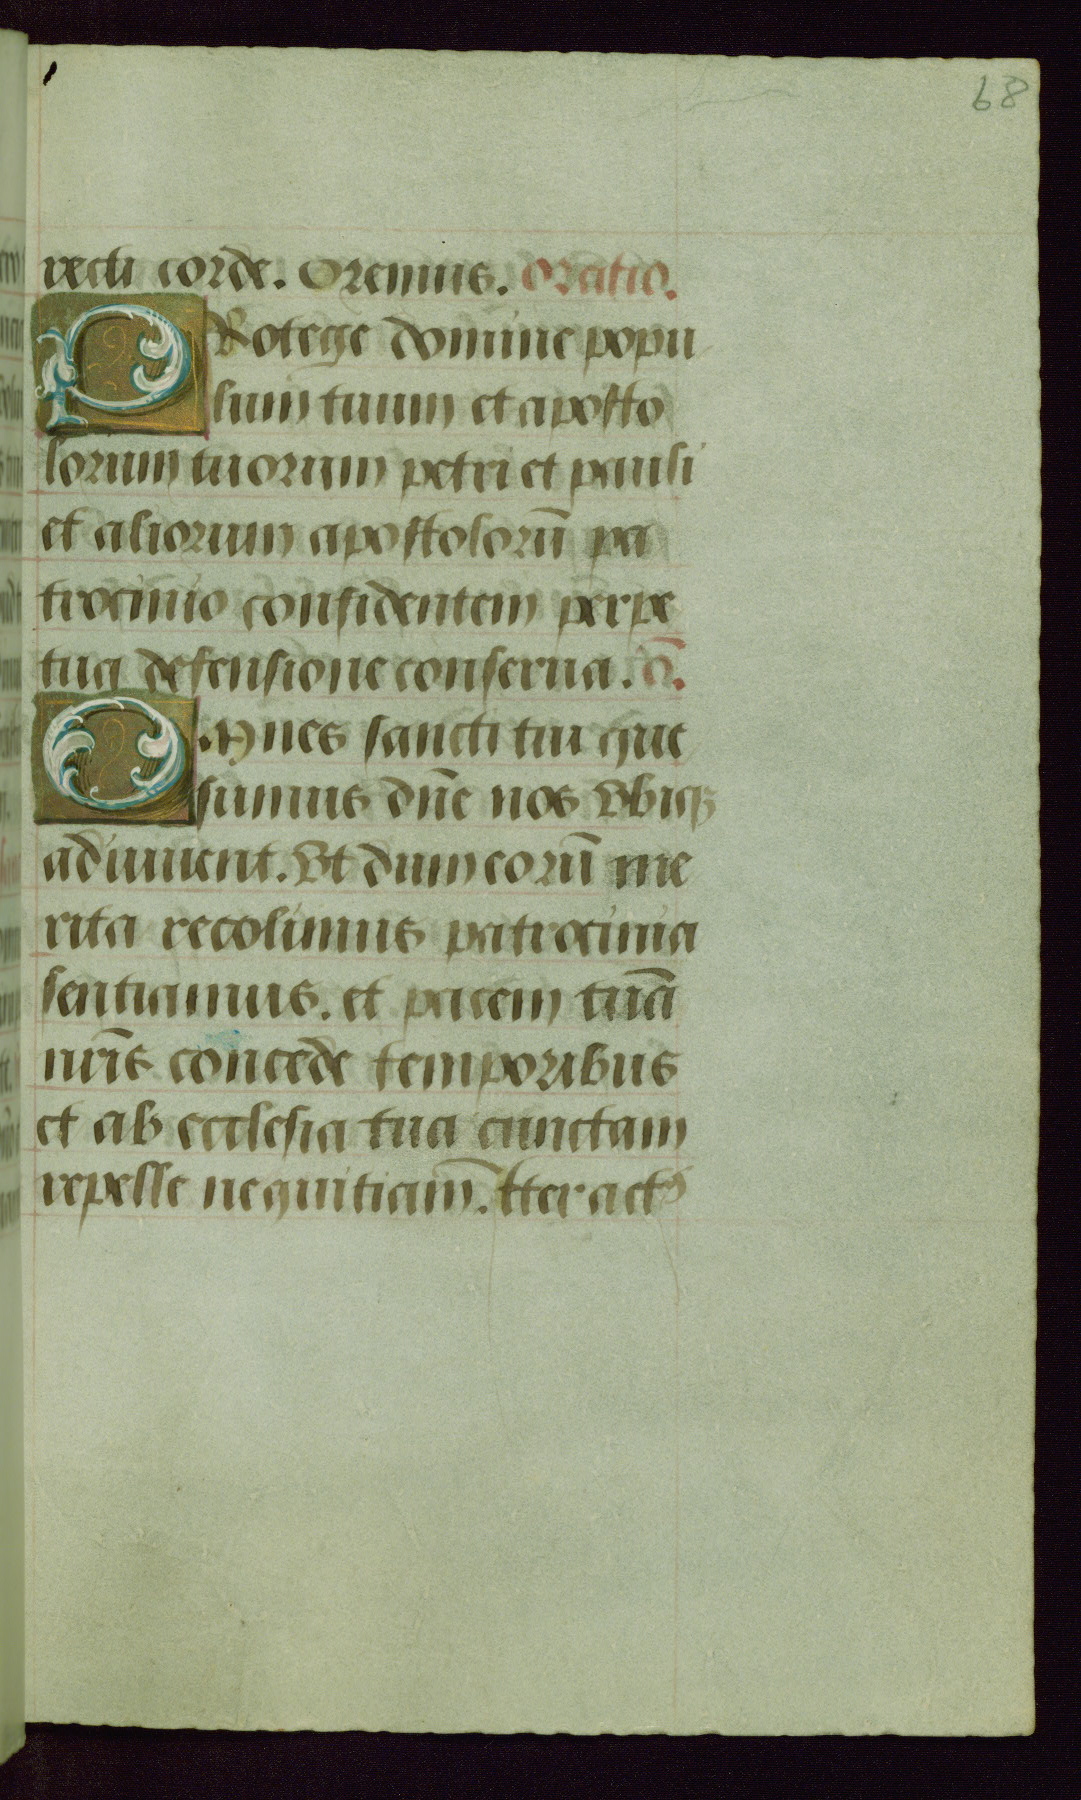 68
recti corde. Oremus. Oratio.
PRotege domine popu
lum tuum et aposto
lorum tuorum petri et pauli
et aliorum apostolorū pa
trocinio confidentem perpe
tua defensione conserua. ō.
OMnes sancti tui que
sumus dn̄e nos vbiqꝫ
adiuuent. Vt dum eorū me
rita recolimus patrocinia
sentiamus. et pacem tuā
nr̄is concede temporibus
et ab ecclesia tua cunctam
repelle nequitiam̄. Iter act⁹